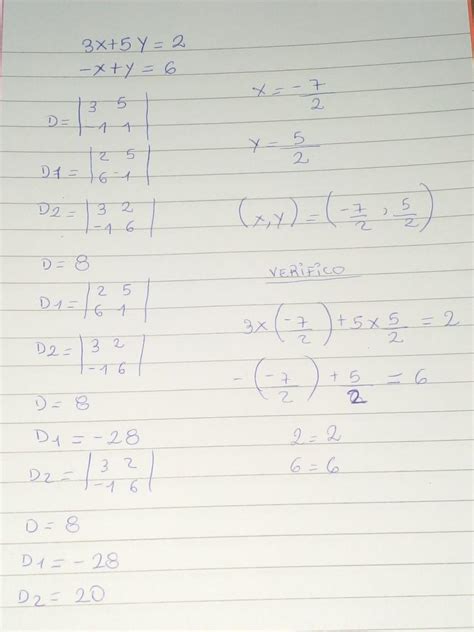 3x+5y=2
-x+y=6
D= |3 5|
|-1 1|
D1= |2 5|
|6 -1|
D2= |3 2|
|-1 6|
D=8
D1= |2 5|
|6 1|
D2= |3 2|
|-1 6|
D=8
D1=-28
D2= |3 2|
|-1 6|
D=8
D1=-28
D2=20
x=-7/2
y=5/2
(x,y)=(-7/2,5/2)
VERIFICO
3x(-7/2)+5x5/2=2
-(-7/2)+5/2=6
2=2
6=6